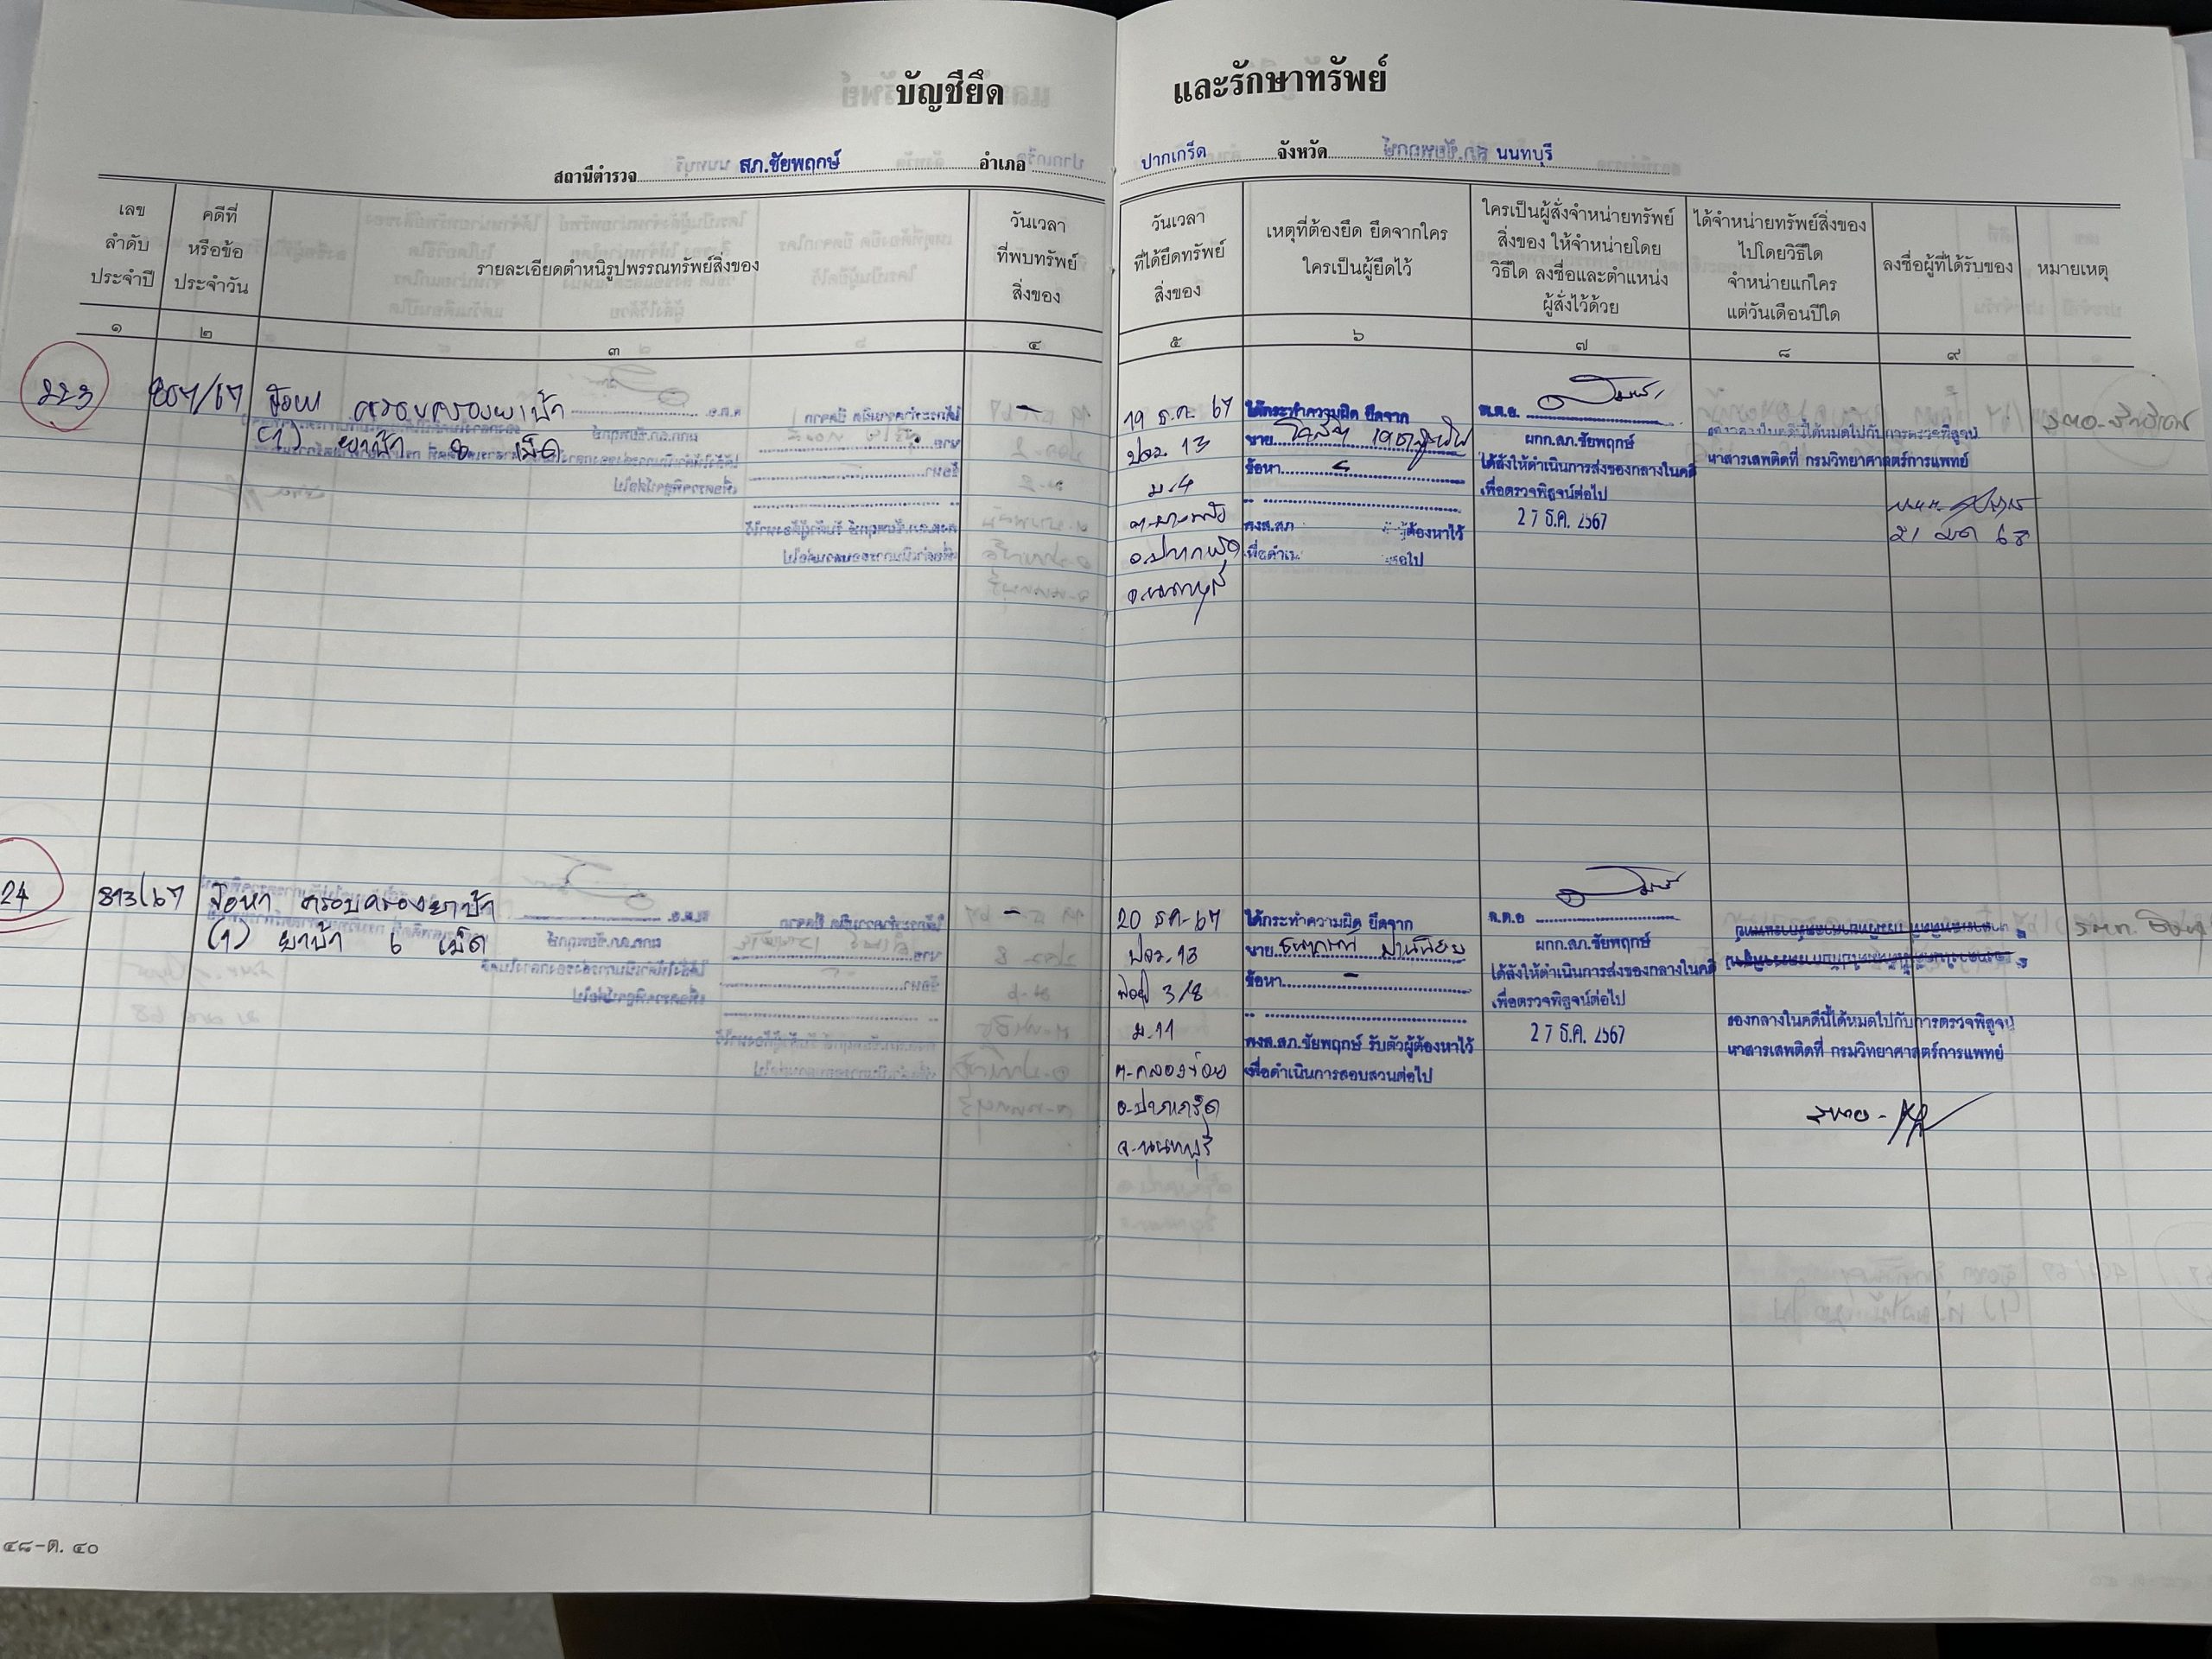 บัญชียึด และรักษาทรัพย์
สถานีตำรวจ สภ.ชัยพฤกษ์ อำเภอ ปากเกร็ด จังหวัด นนทบุรี
เลข
ลำดับ
ประจำปี
คดีที่
หรือข้อ
ประจำวัน
รายละเอียดตำหนิรูปพรรณทรัพย์สิ่งของ
วันเวลา
ที่พบทรัพย์
สิ่งของ
วันเวลา
ที่ได้ยึดทรัพย์
สิ่งของ
เหตุที่ต้องยึด ยึดจากใคร
ใครเป็นผู้ยึดไว้
ใครเป็นผู้สั่งจำหน่ายทรัพย์
สิ่งของ ให้จำหน่ายโดย
วิธีใด ลงชื่อและตำแหน่ง
ผู้สั่งไว้ด้วย
ได้จำหน่ายทรัพย์สิ่งของ
ไปโดยวิธีใด
จำหน่ายแก่ใคร
แต่วันเดือนปีใด
ลงชื่อผู้ที่ได้รับของ
หมายเหตุ
๑ ๒ ๓ ๔ ๕ ๖ ๗ ๘ ๙
223
867/67
ข้อหา ครอบครองยาบ้า
(1) ยาบ้า 8 เม็ด
-
19 ธ.ค. 67
ปจว. 13
ม.4
อ.ปากเกร็ด
จ.นนทบุรี
ได้กระทำความผิด ยึดจาก
นาย
ข้อหา
พงส.สภ ผู้ต้องหาไว้
เพื่อดำเน ต่อไป
พ.ต.อ.
ผกก.สภ.ชัยพฤกษ์
ได้สั่งให้ดำเนินการส่งของกลางในคดี
เพื่อตรวจพิสูจน์ต่อไป
27 ธ.ค. 2567
ของกลางในคดีนี้ได้หมดไปกับการตรวจพิสูจน์
หาสารเสพติดที่ กรมวิทยาศาสตร์การแพทย์
21 มค 68
24
873/67
ข้อหา ครอบครองยาบ้า
(1) ยาบ้า 6 เม็ด
-
20 ธค-67
ปจว. 13
ที่อยู่ 3/8
ม.11
ต.คลองข่อย
อ.ปากเกร็ด
จ.นนทบุรี
ได้กระทำความผิด ยึดจาก
นาย
ข้อหา -
พงส.สภ.ชัยพฤกษ์ รับตัวผู้ต้องหาไว้
เพื่อดำเนินการสอบสวนต่อไป
พ.ต.อ
ผกก.สภ.ชัยพฤกษ์
ได้สั่งให้ดำเนินการส่งของกลางในคดี
เพื่อตรวจพิสูจน์ต่อไป
27 ธ.ค. 2567
ของกลางในคดีนี้ได้หมดไปกับการตรวจพิสูจน์
หาสารเสพติดที่ กรมวิทยาศาสตร์การแพทย์
๔๘-ต. ๔๐